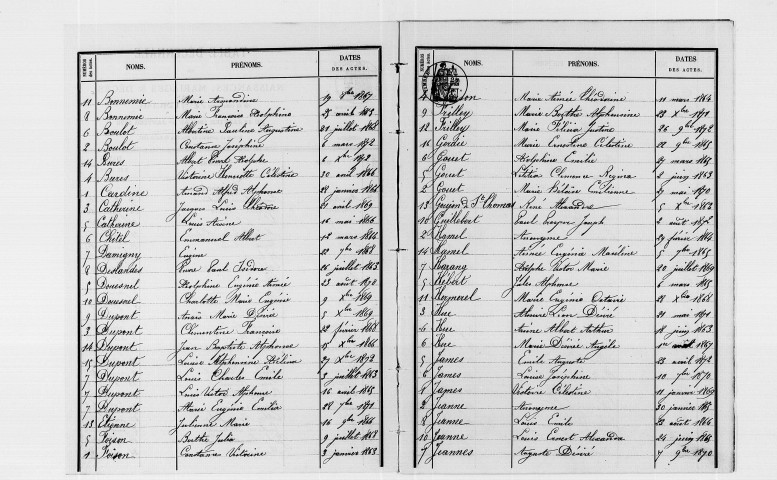 NUMÉROS des actes. NOMS. PRÉNOMS. DATES DES ACTES.
11 Bonnemie Marie Armandine 19 1867
8 Bonnemie Marie Françoise Delphine 25 août 1863
6 Boulot Albertine Pauline Augustine 21 juillet 1868
2 Boulot Constance Joséphine 6 mars 1872
14 Bures Albert 6 Xbre 1872
4 Bures Victoire Henriette Célestine 30 août 1866
1 Cardine Armand Alfred Alphonse 28 janvier 1864
3 Catherine Jacques Louis Théodore 21 août 1869
5 Catherine Louis 16 mai 1866
6 Châtel Emmanuel Albert 12 mars 1864
7 Damigny Eugène 22 7bre 1868
8 Deslandes Pierre Paul Isidore 26 juillet 1863
5 Douesnel Delphine Eugénie Aimée 23 août 1870
10 Douesnel Charlotte Marie Eugénie 9 Xbre 1869
9 Dupont Anaïs Marie Désirée 5 Xbre 1869
3 Dupont Clémentine Françoise 22 février 1868
14 Dupont Jean Baptiste Alphonse 15 Xbre 1866
15 Dupont Louise Alphonsine 27 Xbre 1872
7 Dupont Louis Charles Emile 3 juillet 1863
7 Dupont Louis Victor Alphonse 16 août 1865
7 Dupont Marie Eugénie Emilia 28 7bre 1871
13 Etienne Julienne Marie 16 9bre 1866
5 Foison Berthe Julia 9 juillet 1868
1 Foison Constance Victoire 3 janvier 1863
NOMS. PRÉNOMS. DATES DES ACTES.
Marie Aimée Théodorine 11 mai 1864
9 Frilley Marie Berthe Alphonsine 22 Xbre 1871
12 Frilley Marie Félicia Justine 26 9bre 1872
16 Marie Ernestine Célestine 22 9bre 1865
6 Gouet Delphine Emilie 27 mars 1865
5 Gouet Clémence Régina
2 Gouet Marie 27 mai 1870
13 Guyon d. St Thomas René Alexandre 5 Xbre 1863
10 Guillebert Paul Prosper Joseph 2 août 1872
Hamel Anonyme 29 février 1864
14 Hamel Aimée Eugénia Maxéline 5 7bre 1865
7 Harang Adolphe Victor Marie 20 juillet 1869
5 Hébert Jules Alphonse 6 mars 1865
11 Marie Eugénie Octavie 21 Xbre 1868
3 Hue Léon Désiré 21 mai 1871
6 Hue Albert Arthur 18 juin 1863
6 Hue Marie Désirée Angèle 1867
5 James Emile Auguste 23 août 1872
6 James Louise Joséphine 10 7bre 1870
James Victoire Célestine 11 janvier 1869
2 Jeanne Anonyme 30 janvier
8 Jeanne Louis Emile 23 août 1866
10 Jeanne Louis Ernest Alexandre 24 juin 1865
7 Jeannes Auguste Désiré 7 9bre 1870